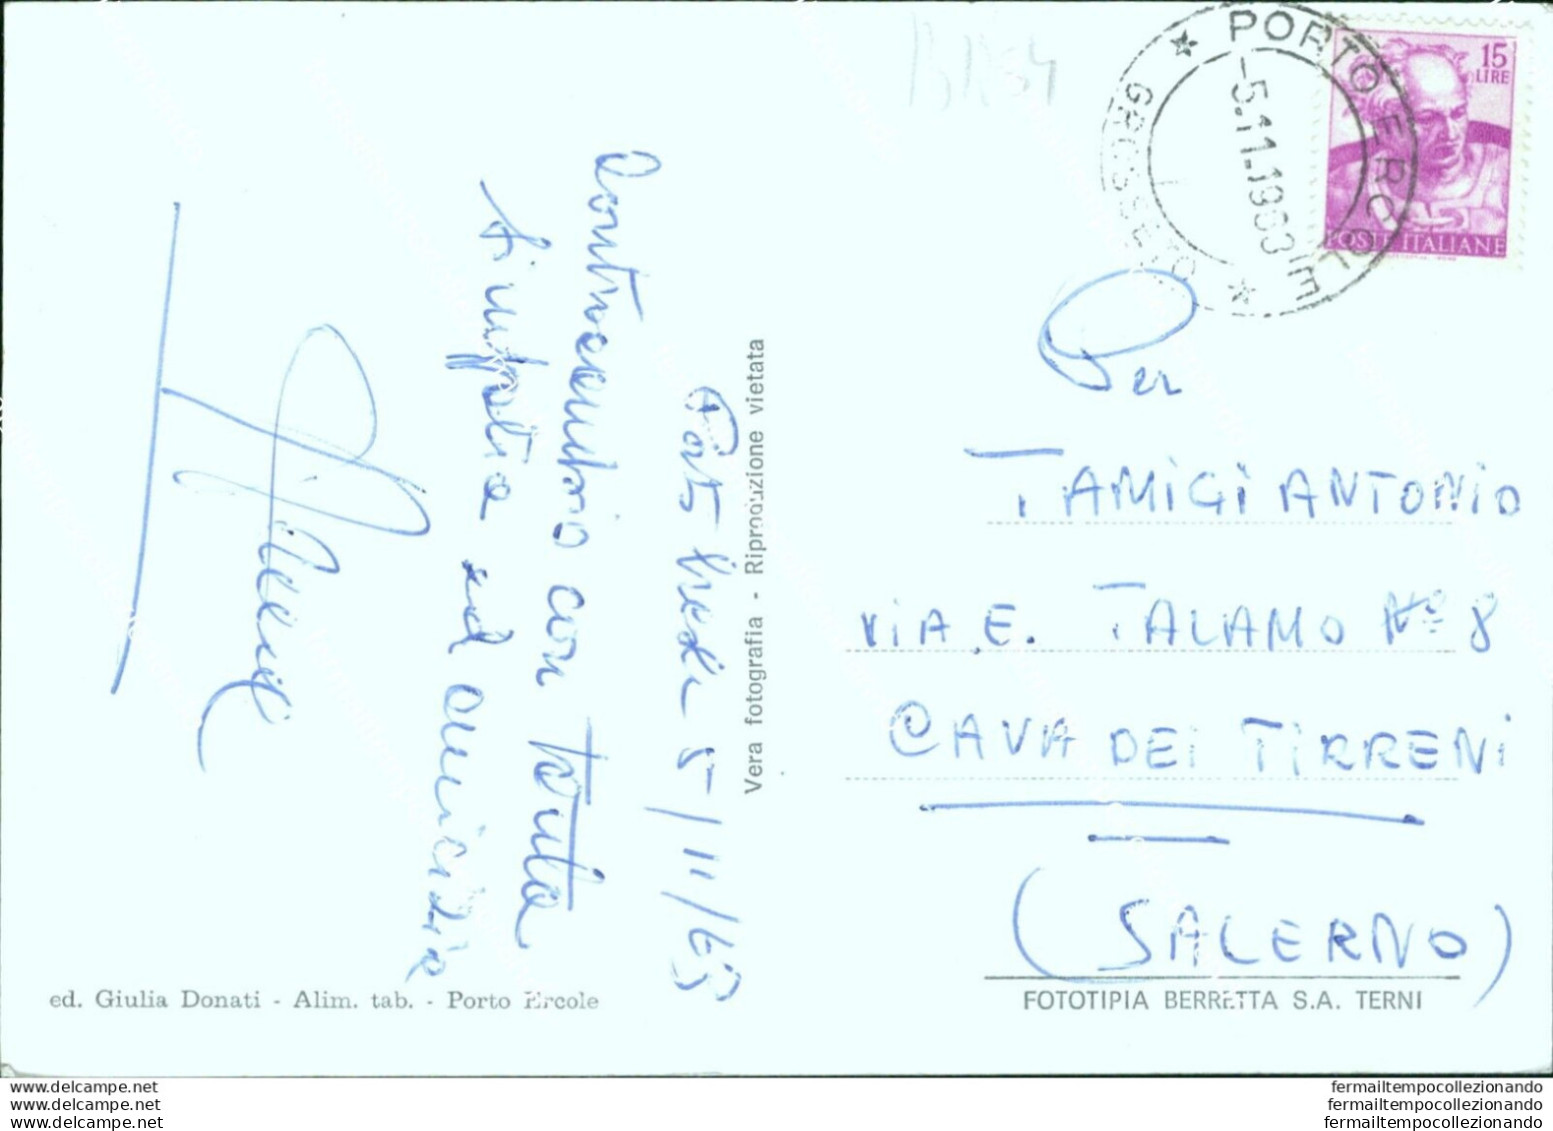 Porto Ercole 5/11/63
Contraccambio con tanta
simpatia ed amicizia
Vera fotografia - Riproduzione vietata
ed. Giulia Donati - Alim. tab. - Porto Ercole
* PORTO ERCOLE *
GROSSETO
-5.11.1963
15
LIRE
POSTE ITALIANE
Per
TAMIGI ANTONIO
VIA E. TALAMO N° 8
CAVA DEI TIRRENI
(SALERNO)
FOTOTIPIA BERRETTA S.A. TERNI
www.delcampe.net
www.delcampe.net
www.delcampe.net
fermailtempocollezionando
fermailtempocollezionando
fermailtempocollezionando